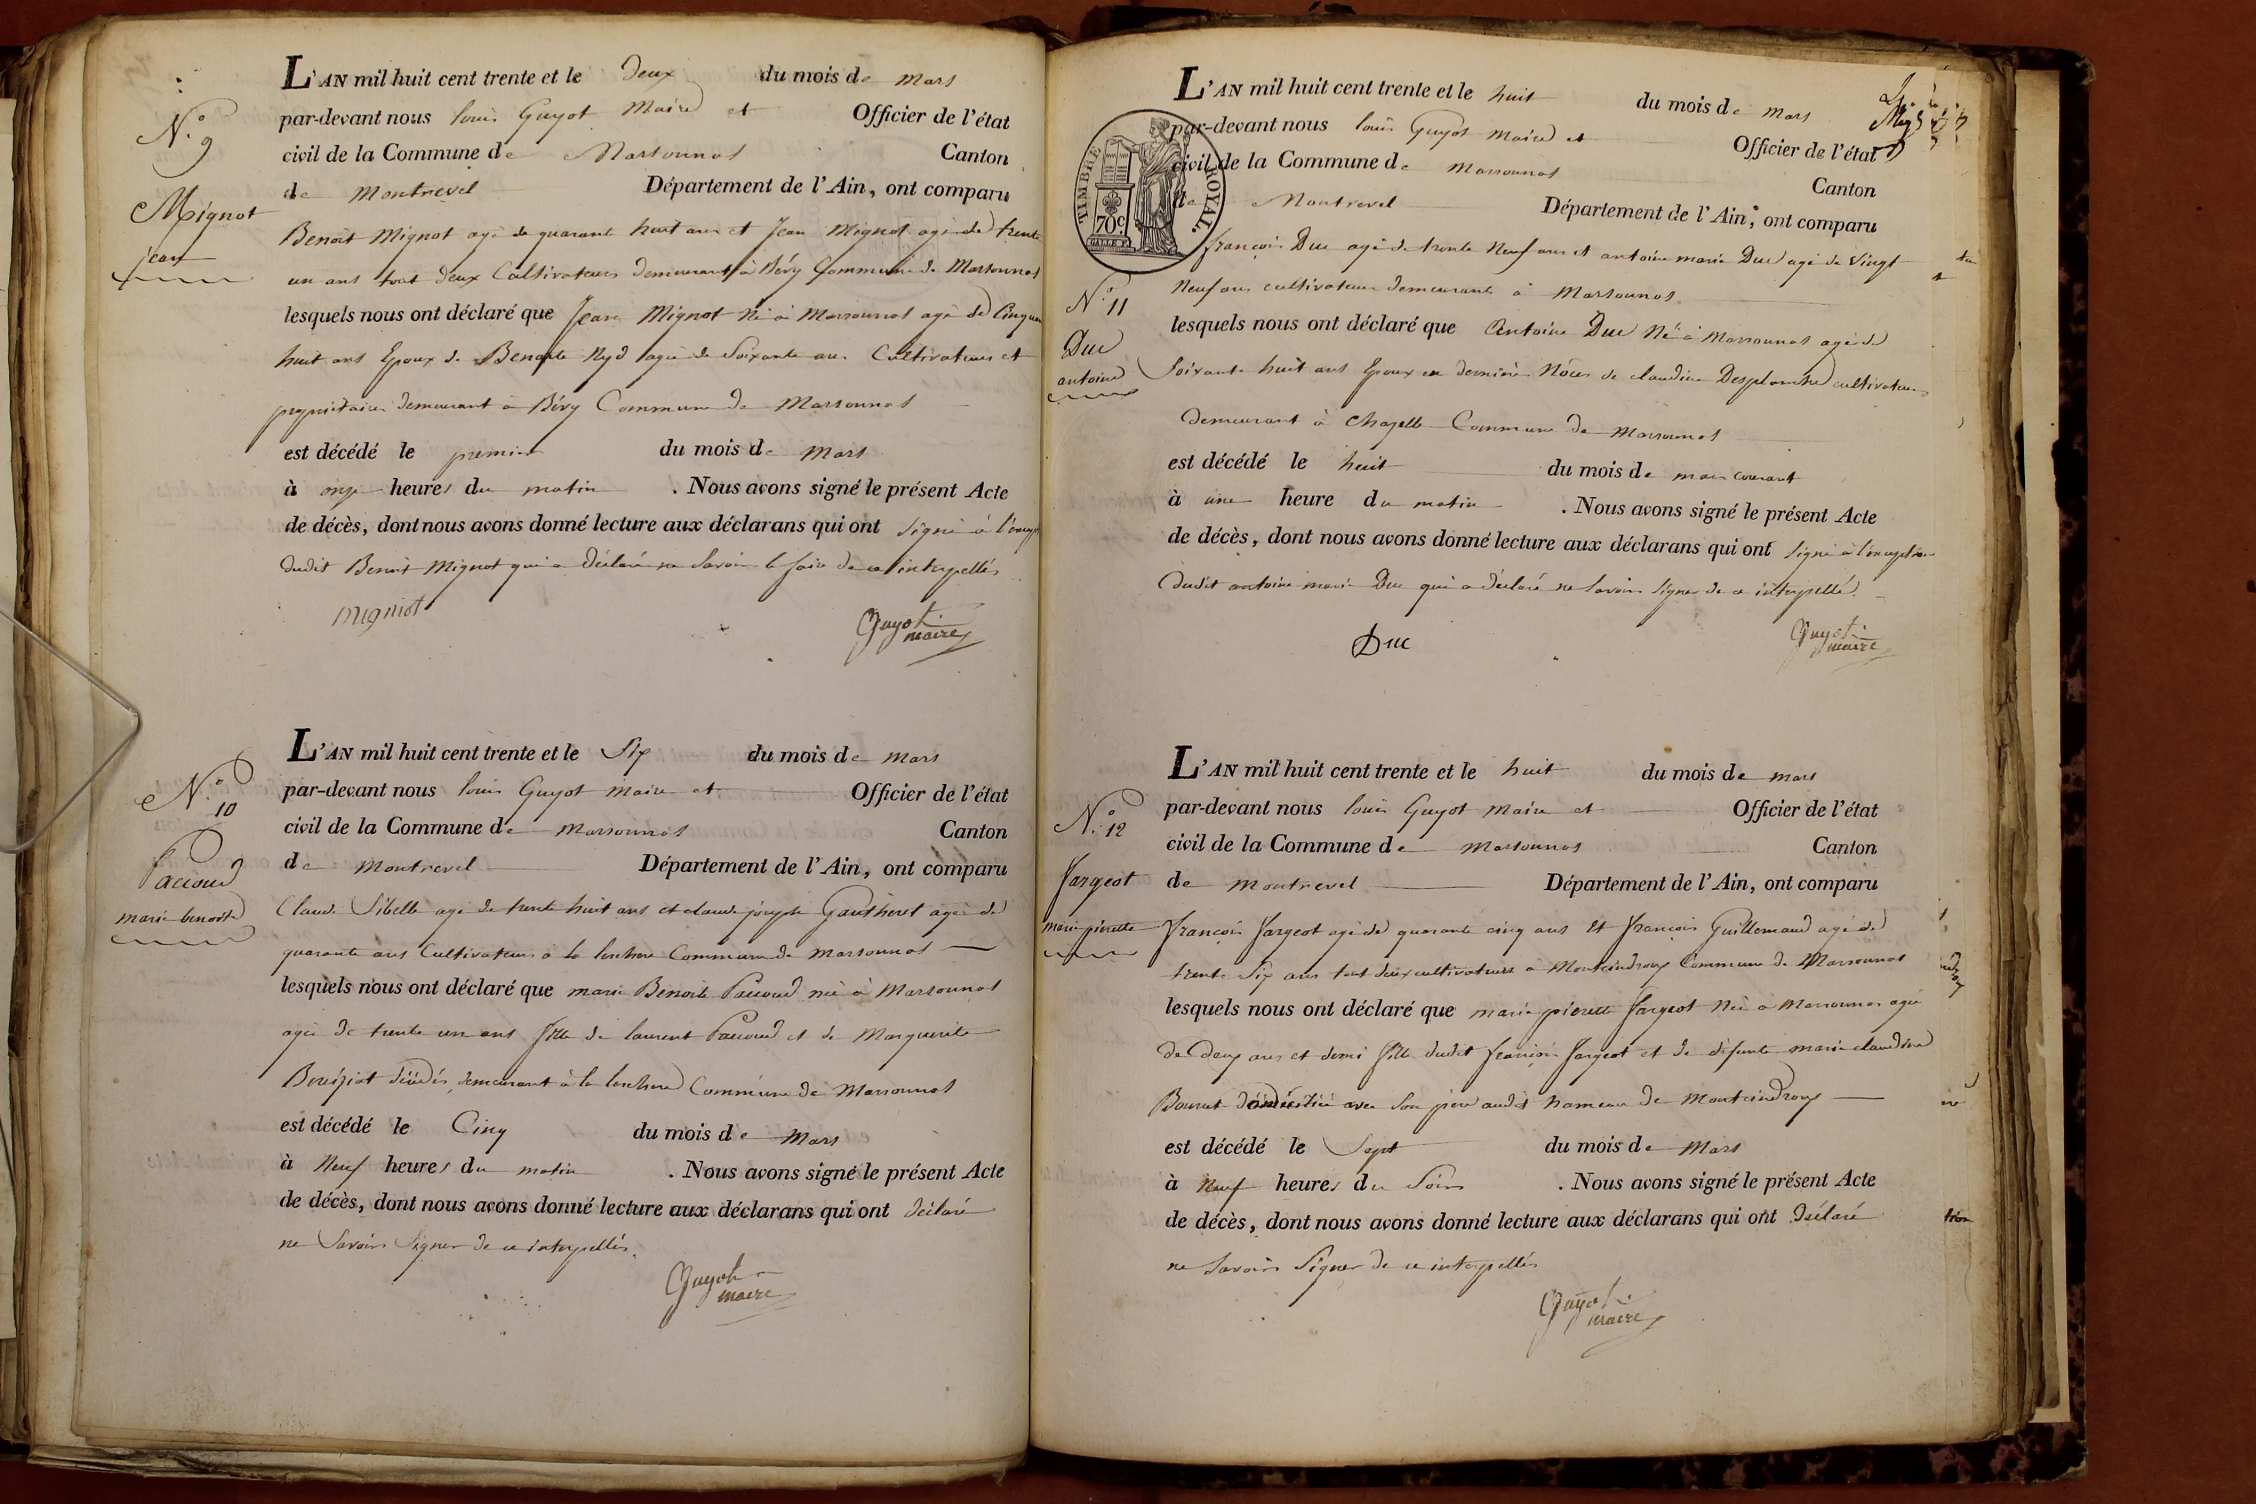 N.° 9
Mignot
jean
L'AN mil huit cent trente et le deux du mois de mars
par-devant nous louis Guyot Maire et Officier de l'état
civil de la Commune de Marsonnas Canton
de Montrevel Département de l'Ain, ont comparu
Benoit Mignot agé de quarant huit ans et Jean Mignot agé de trente
un ans tout deux Cultivateurs demeurant à Bévy Commune de Marsonnas
lesquels nous ont déclaré que Jean Mignot Né à Marsonnas agé de Cinquan
huit ans Epoux de Benoite agée de Soixante ans Cultivateur et
propriétaire demeurant à Bévy Commune de Marsonnas
est décédé le premier du mois de mars
à onze heures du matin . Nous avons signé le présent Acte
de décès, dont nous avons donné lecture aux déclarans qui ont signé à l'excep
dudit Benoit Mignot qui a déclaré ne Savoir le faire de ce interpellés
migniot
Guyot maire
N.° 10
Paccoud
marie benoite
L'AN mil huit cent trente et le Six du mois de mars
par-devant nous louis Guyot maire et Officier de l'état
civil de la Commune de marsonnas Canton
de Montrevel Département de l'Ain, ont comparu
Claude Sibelle agé de trente huit ans et claude joseph Gautheret agé de
quarante ans Cultivateurs à la Commune de Marsonnas
lesquels nous ont déclaré que marie Benoite Paccoud née à Marsonnas
agée de trente un ans fille de laurent Paccoud et de Marguerite
décédés, demeurant à la Commune de Marsonnas
est décédé le Cinq du mois de Mars
à Neuf heures du matin . Nous avons signé le présent Acte
de décès, dont nous avons donné lecture aux déclarans qui ont déclaré
ne Savoir Signer de ce interpellés.
Guyot maire
TIMBRE ROYAL.
70c.
N.° 11
Duc
antoine
L'AN mil huit cent trente et le huit du mois de mars
par-devant nous louis Guyot maire et Officier de l'état
civil de la Commune de marsonnas Canton
de Montrevel Département de l'Ain, ont comparu
françois Duc agé de trente Neuf ans et antoine marie Duc agé de Vingt
Neuf ans cultivateurs demeurants à Marsonnas
lesquels nous ont déclaré que Antoine Duc Né à Marsonnas agé de
Soixante huit ans Epoux en dernière Nôces de claudine Desplanche cultivateur
demeurant à Chazelle Commune de Marsonnas
est décédé le huit du mois de mars courant
à une heure du matin . Nous avons signé le présent Acte
de décès, dont nous avons donné lecture aux déclarans qui ont signé à l'exception
dudit antoine marie Duc qui a déclaré ne Savoir Signer de ce interpellé.
Duc
Guyot maire
N.° 12
Jargeot
marie pierette
L'AN mil huit cent trente et le huit du mois de mars
par-devant nous louis Guyot maire et Officier de l'état
civil de la Commune de Marsonnas Canton
de Montrevel Département de l'Ain, ont comparu
françois Jargeot agé de quarante cinq ans Et françois Guillemaud agé de
trente Six ans tout deux cultivateurs à Montcindroux Commune de Marsonnas
lesquels nous ont déclaré que marie pierette Jargeot Née à Marsonnas agée
de deux ans et demi fille dudit françois Jargeot et de défunte marie claudine
avec Son père audit hameau de Montcindroux
est décédé le Sept du mois de Mars
à Neuf heures du Soir . Nous avons signé le présent Acte
de décès, dont nous avons donné lecture aux déclarans qui ont déclaré
ne Savoir Signer de ce interpellés
Guyot maire